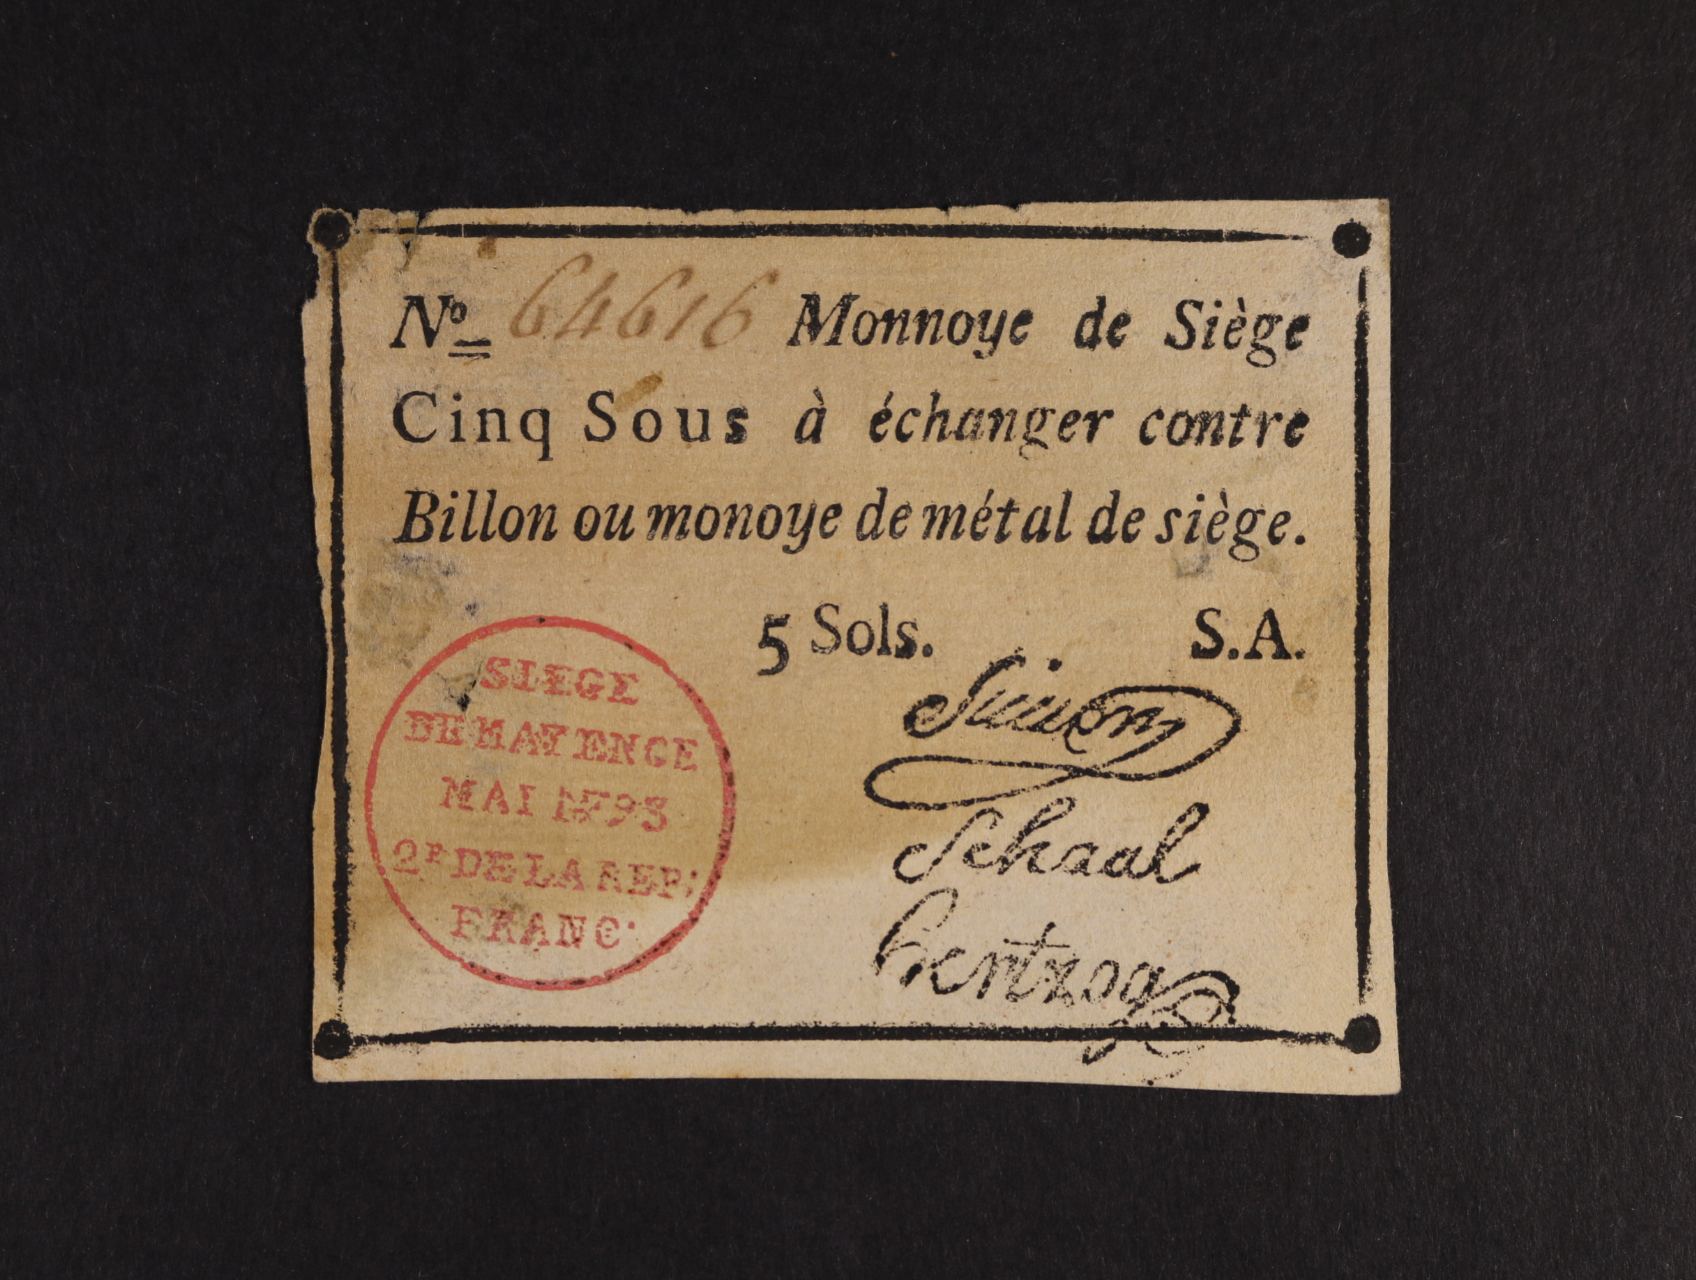 No 64616 Monnoye de Siège
Cinq Sous à échanger contre
Billon ou monoye de métal de siège.
5 Sols. S.A.
SIEGE
DE MAYENCE
MAI 1793
2E DE LA REP:
FRANC·
Simon
Schaal
hertzog